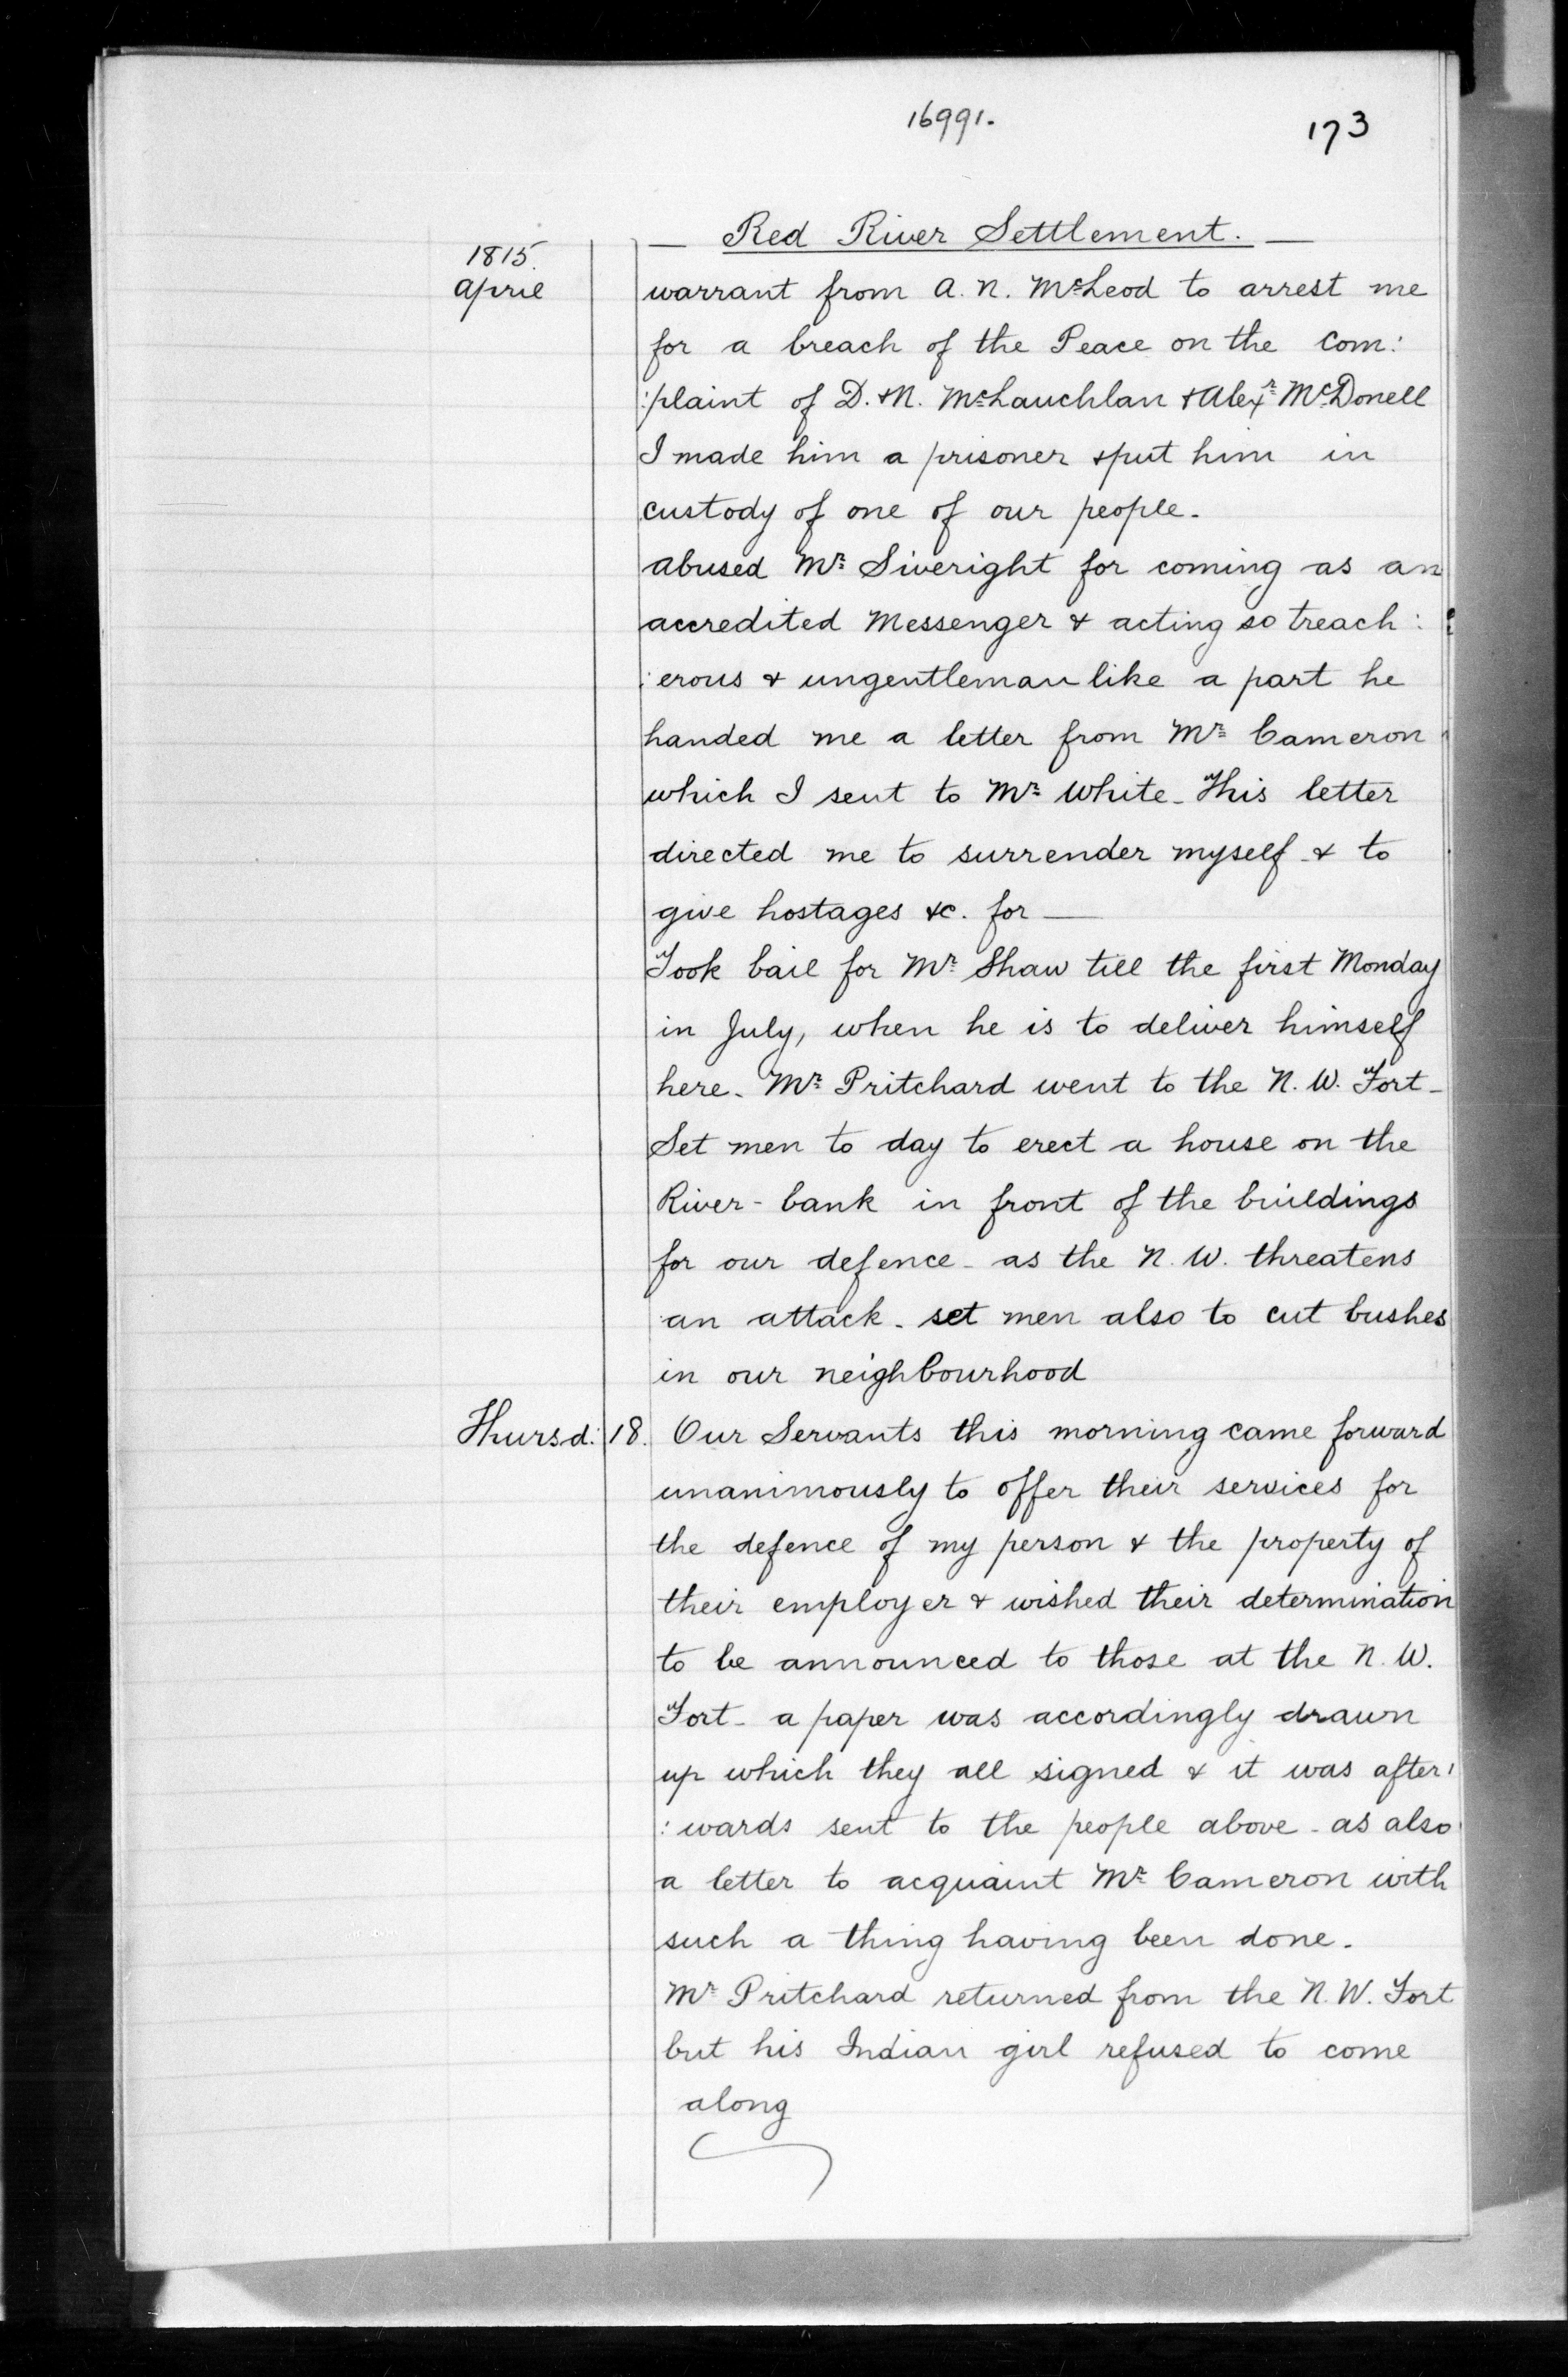 16991.
173
Red River Settlement.
1815.
April
warrant from A. N. McLeod to arrest me
for a breach of the Peace on the Com:
:plaint of D. & N. McLauchlan & Alexr McDonell
I made him a prisoner & put him in
custody of one of our people.
Abused Mr Siveright for coming as an
accredited Messenger & acting so treach:
:erous & ungentlemanlike a part he
handed me a letter from Mr Cameron
which I sent to Mr White - This letter
directed me to surrender myself & to
give hostages &c. for —
Took bail for Mr Shaw till the first Monday
in July, when he is to deliver himself
here. Mr Pritchard went to the N. W. Fort -
Set men to day to erect a house on the
River-bank in front of the buildings
for our defence - as the N. W. threatens
an attack - set men also to cut bushes
in our neighbourhood
Thursd: 18. Our Servants this morning came forward
unanimously to offer their services for
the defence of my person & the property of
their employer & wished their determination
to be announced to those at the N. W.
Fort - a paper was accordingly drawn
up which they all signed & it was after:
:wards sent to the people above - as also
a letter to acquaint Mr Cameron with
such a thing having been done.
Mr Pritchard returned from the N. W. Fort
but his Indian girl refused to come
along